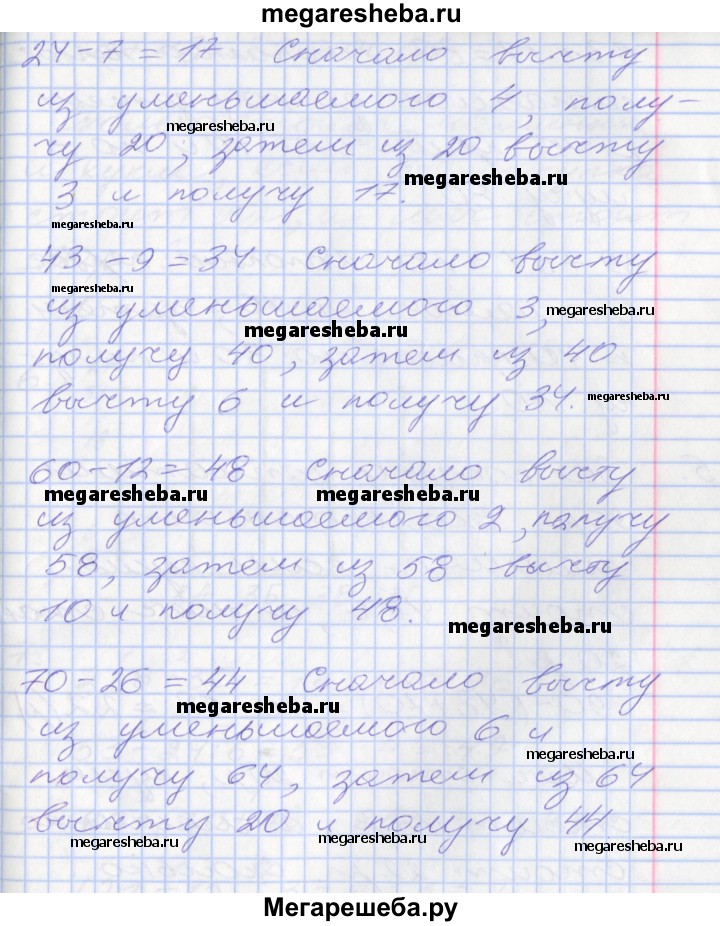 megaresheba.ru
24-7=17 Сначало вычту
из уменьшаемого 4, полу-
megaresheba.ru
чу 20, затем из 20 вычту
megaresheba.ru
3 и получу 17.
megaresheba.ru
43-9=34 Сначало вычту
megaresheba.ru
из уменьшаемого 3,
megaresheba.ru
megaresheba.ru
получу 40, затем из 40
вычту 6 и получу 34.
megaresheba.ru
60-12=48 Сначало вычту
megaresheba.ru megaresheba.ru
из уменьшаемого 2, палучу
58, затем из 58 вычту
10 и получу 48.
megaresheba.ru
70-26=44 Сначало вычту
megaresheba.ru
из уменьшаемого 6 и
megaresheba.ru
получу 64, затем из 64
вычту 20 и получу 44.
megaresheba.ru megaresheba.ru megaresheba.ru
Мегарешеба.ру